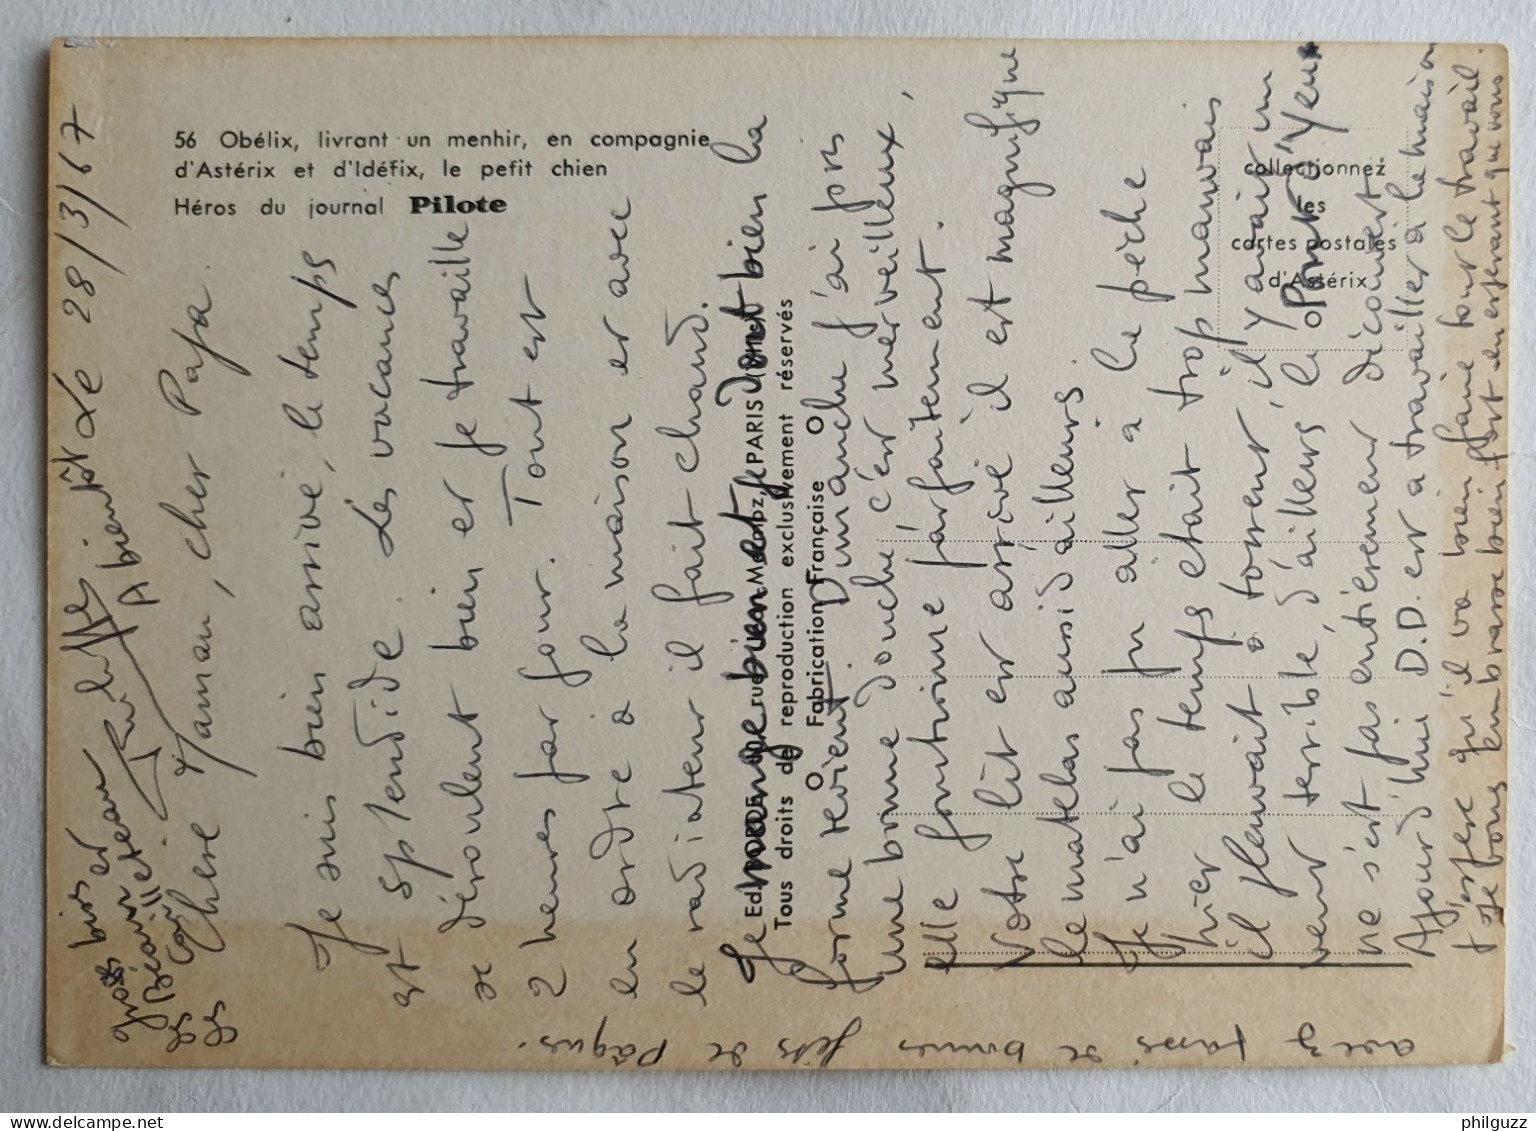 56 Obélix, livrant un menhir, en compagnie
d'Astérix et d'Idéfix, le petit chien
Héros du journal Pilote
collectionnez
les
cartes postales
d'Astérix
Tous droits de reproduction exclusivement réservés
Fabrication Française
Le 28/3/67
Chère Maman, cher Papa.
Je suis bien arrivé, le temps
est splendide. Les vacances
se déroulent bien et je travaille
2 heures par jour. Tout est
en ordre à la maison et avec
le radiateur il fait chaud.
Je mange bien et je dors bien la
forme revient. Dimanche j'ai pris
une bonne douche c'est merveilleux,
elle fonctionne parfaitement.
Votre lit est arrivé il est magnifique
le matelas aussi d'ailleurs.
Je n'ai pas pu aller à la pêche
hier le temps était trop mauvais
il pleuvait à torrent, il y avait un
vent terrible, d'ailleurs le Pont d'Yeu
ne s'est pas entièrement découvert
Ajourd'hui D.D. est a travailler à la maison
j'espère qu'il va bien faire tout le travail.
Je vous embrasse bien fort en espérant que vous
avez passé de bonnes fêtes de Pâques.
A bientôt
Gros bises et